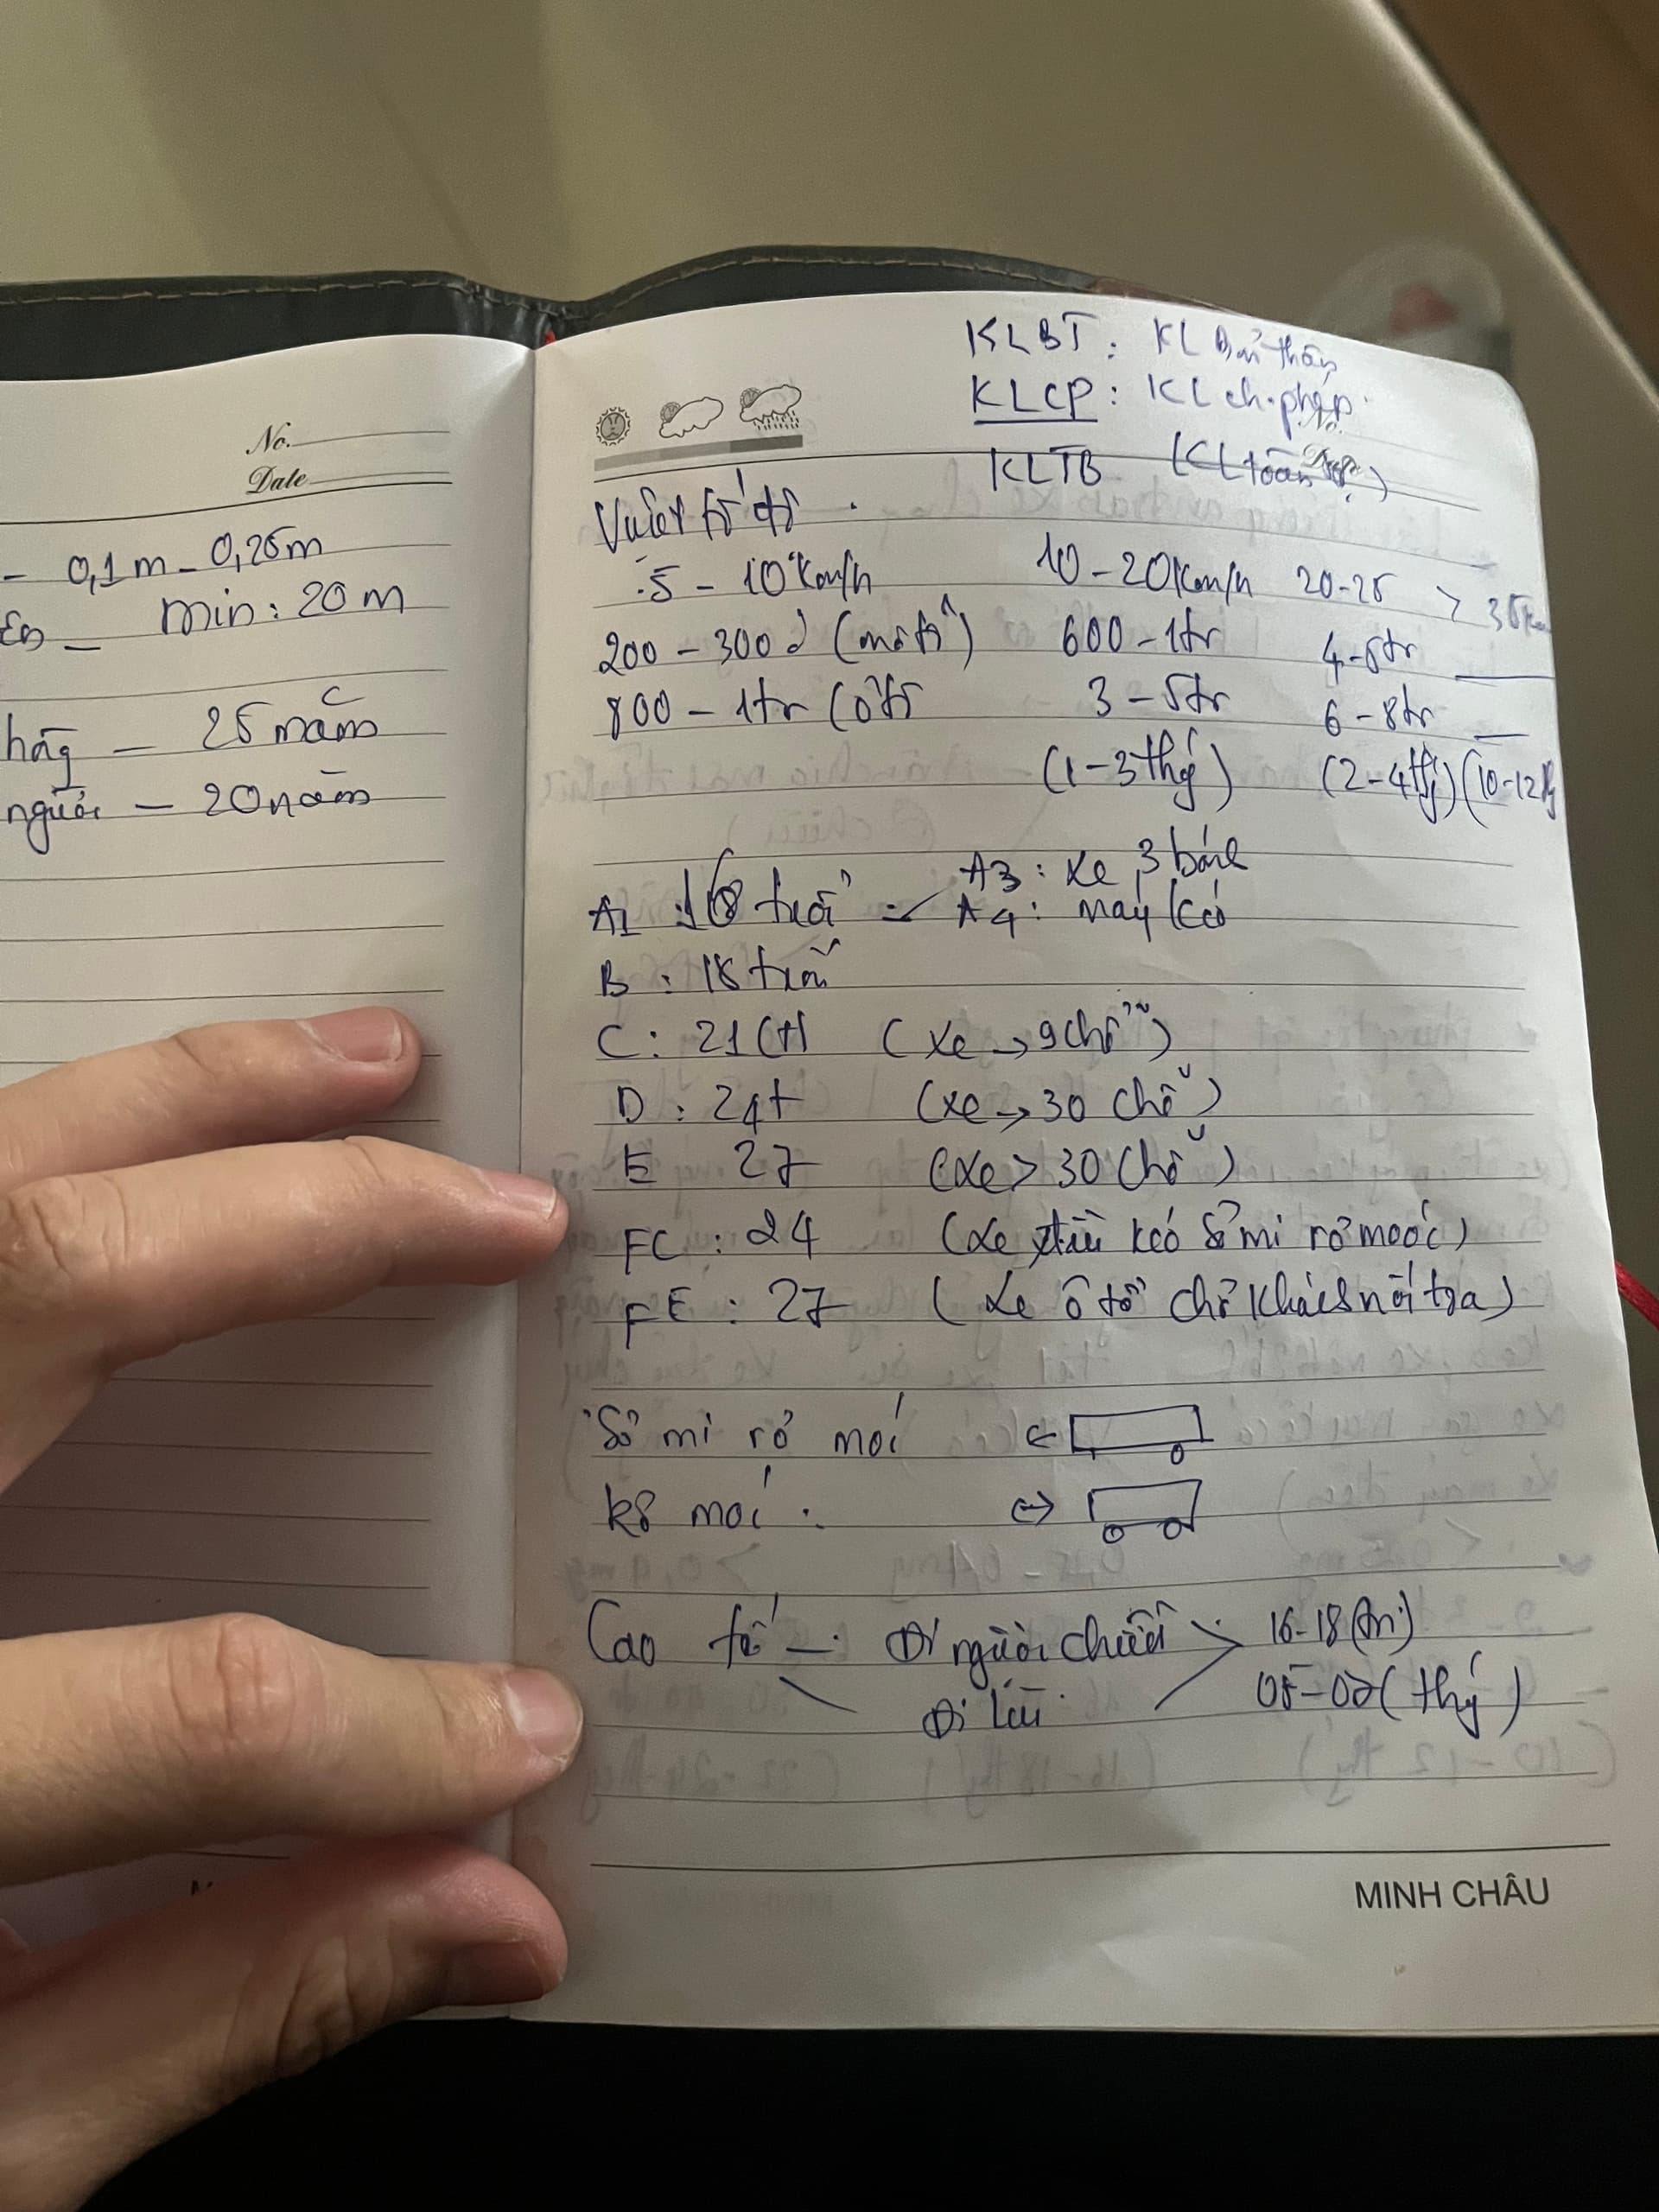 No.
Date
- 0,1m - 0,25m
- Min: 20m
- 25 năm
người - 20 năm
KLBT: KL Bản thân
KLCP: KL ch.phép
No.
KLTB (KL toàn bộ)
Vượt tốc độ
5 - 10 Km/h 10 - 20 Km/h 20-25 > 35 Km
200 - 300đ (mô tô) 600 - 1tr 4-5tr
800 - 1tr (ô tô 3 - 5tr 6 - 8tr
(1-3 thg) (2-4 thg) (10-12 thg
A3: Xe 3 bánh
A1: 18 tuổi A4: máy kéo
B: 18 tuổi
C: 21 (t) (xe → 9 chỗ)
D: 24t (xe → 30 chỗ)
E 27 (xe > 30 chỗ)
FC: 24 (xe đầu kéo sơ mi rơ moóc)
FE: 27 (xe ô tô chở khách nối toa)
Sơ mi rơ moi ←
Rơ moi: ↔
Cao tốc - Đi ngược chiều 16-18 (tr)
Đi lùi 05-07 (thg)
MINH CHÂU